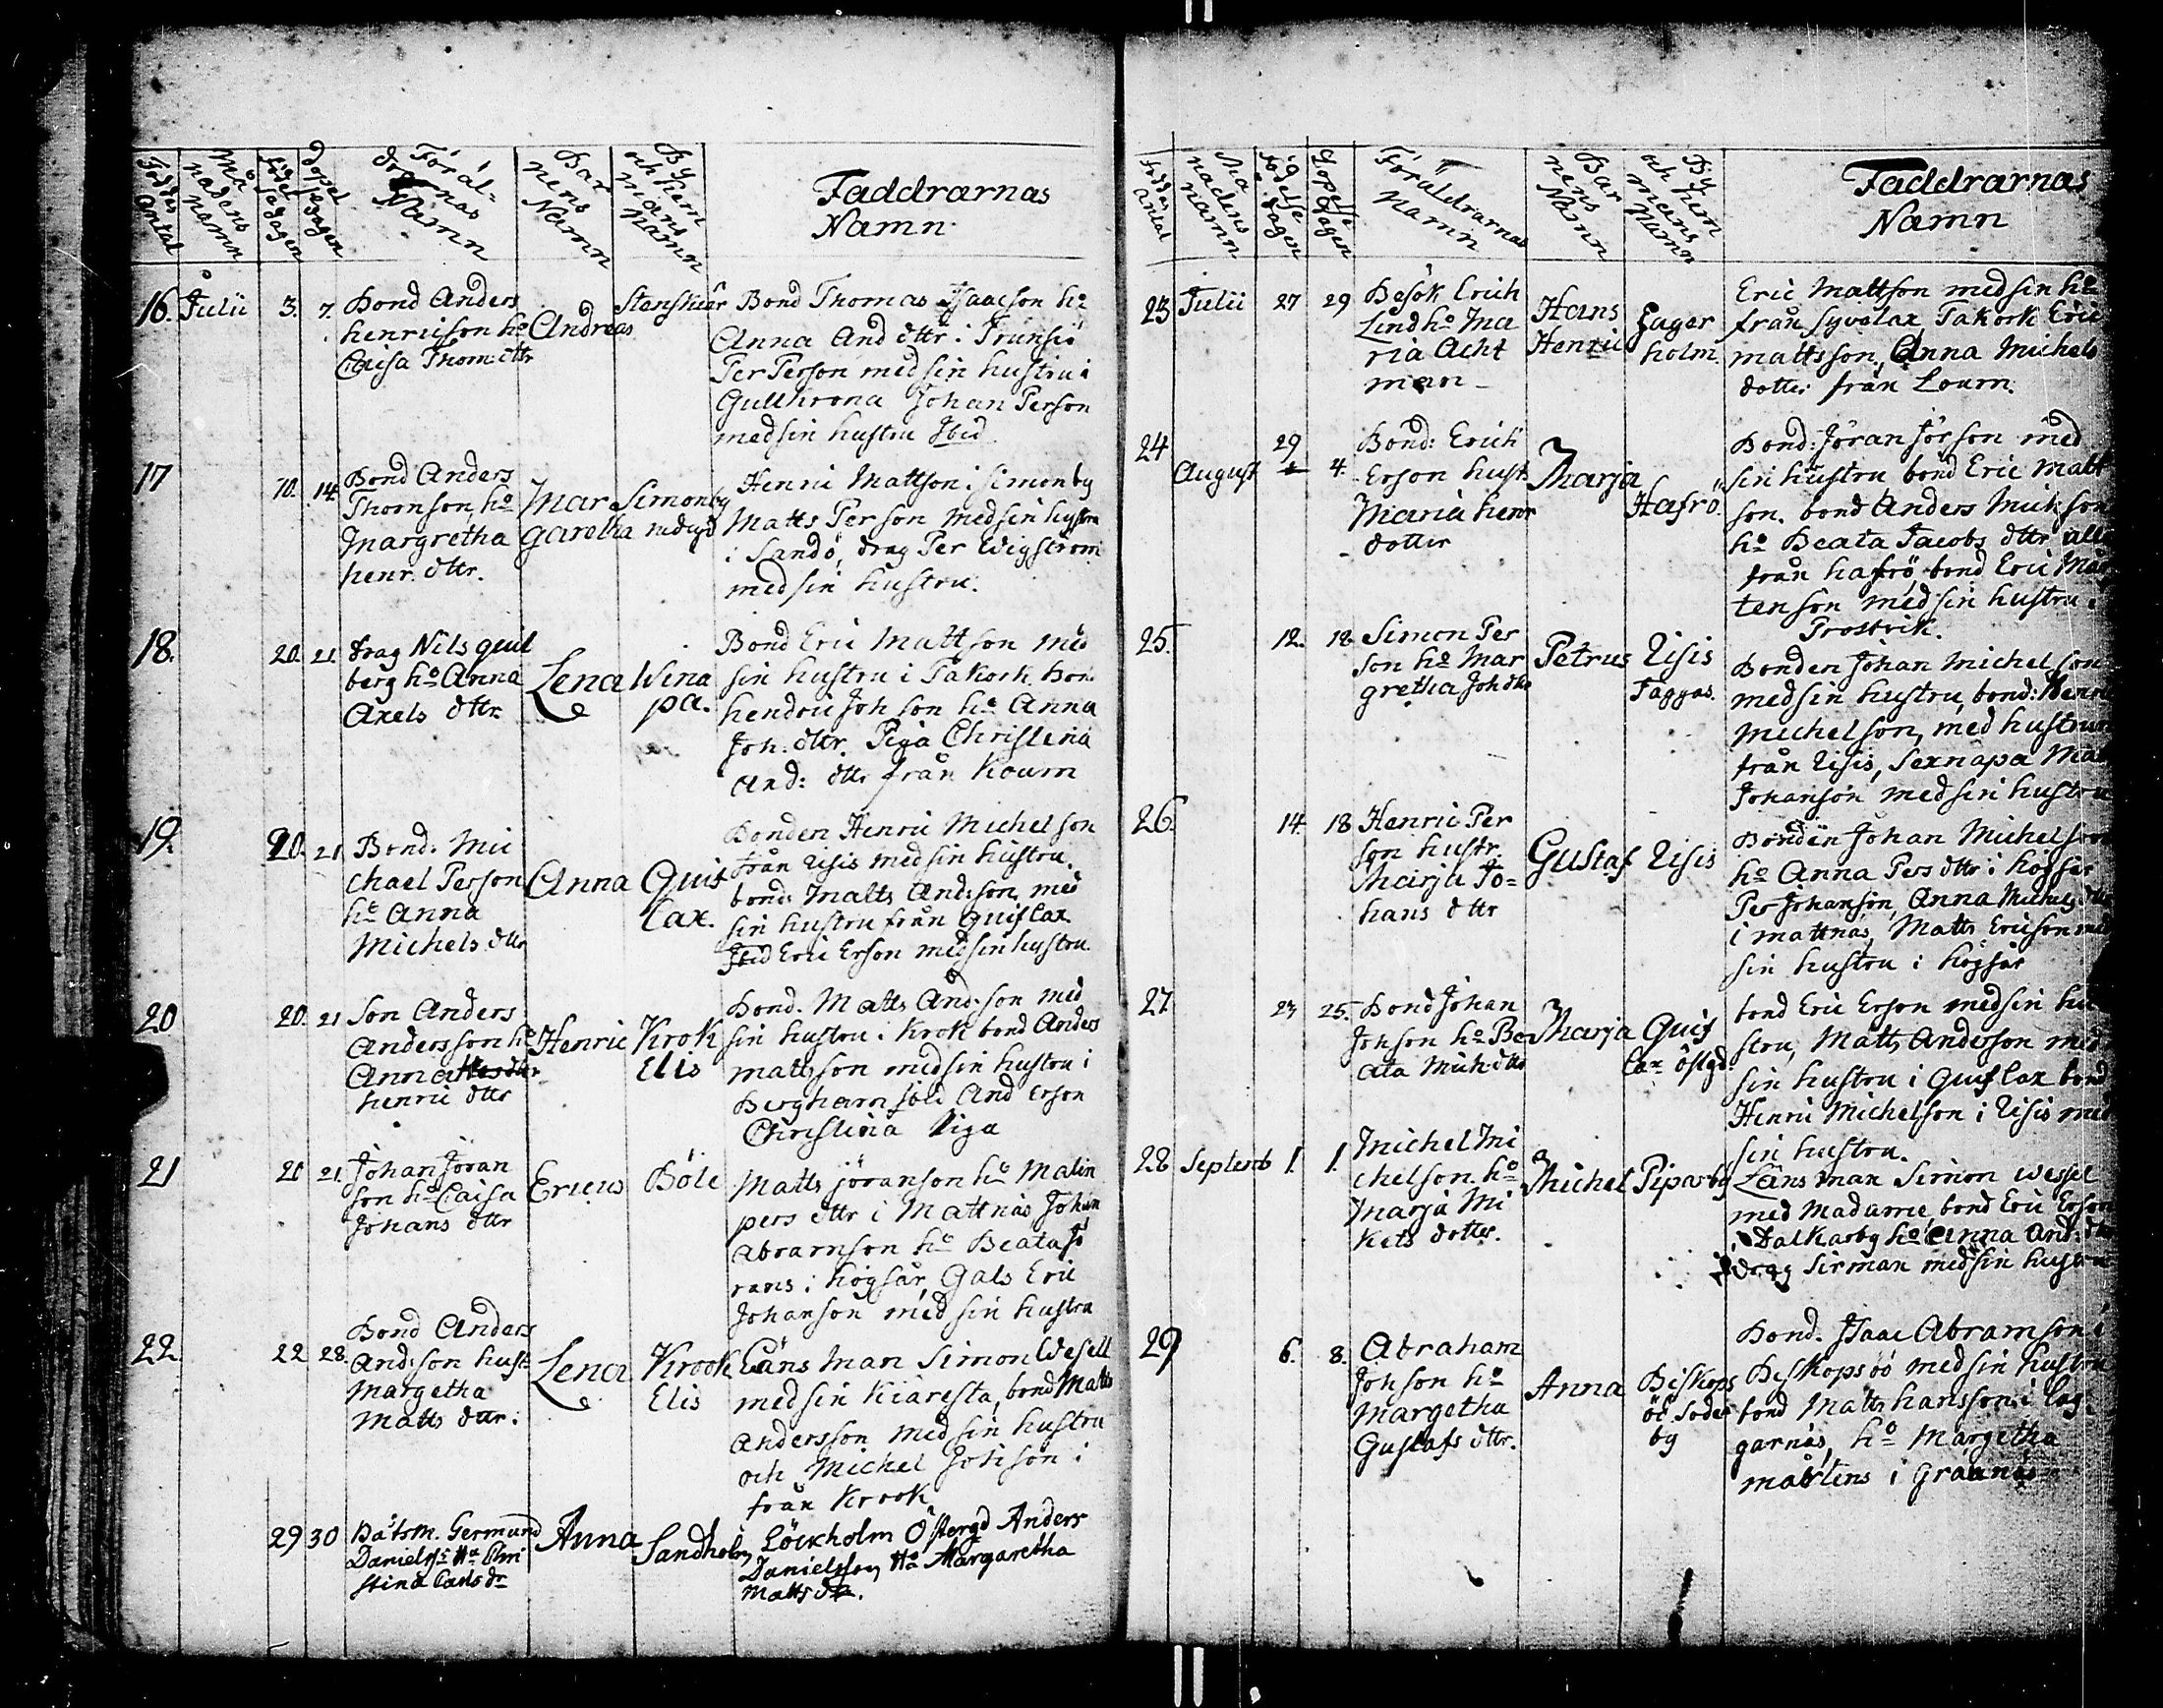 Föddas Antal
Månadens Namn
Födelsedagen
Dopelsedagen
Föräldrarnas Namn
Barnens Namn
By och Hemmans Namn
Faddrarnas Namn
16. Julii 3. 7.
Bond Anders
henricson ho
Caisa Thom: dttr
Andreas
Stenskiär
Bond Thomas Isaacson ho
Anna And dttr i Trunsö
Per Person med sin hustru i
Gullkrona Johan Person
med sin hustru Ibid.
17 10. 14.
Bond Anders
Thomson, ho
Margretha
henr. dttr.
Mar
garetha
Simonby
nedergd
Henric Mattson i Simonby
Matts Person med sin hustru
i Sandö, drag Per Wigström
med sin hustru.
18. 20. 21.
drag Nils quil
berg ho Anna
Axels dttr.
Lena
Wena
pa.
Bond Eric Mattson med
sin hustru i Takork. Bon
hendric Joh son ho Anna
Joh: dttr. Piga Christina
And: dttr från Kourn
19. 20. 21
Bond. Mic
chael Person
ho Anna
Michels dttr
Anna
Quif
lax.
Bonden Henric Michelson
från Risis med sin hustru.
bond. Matts And:son med
sin hustru från quiflax
Ibid Eric Erson med sin hustru.
20 20. 21
Son Anders
Andersson ho
Anna
henric dttr
Henric
Krok
Elis
Bond. Matts And:son med
sin hustru i Krok bond Anders
mattsson med sin hustru i
Bergham And Erson
Christina Piga
21 20 21.
Johan Jöran
son ho Caisa
Johans dttr
Ericus
Böle
Matts jöranson ho Malin
pers dttr i Mattnäs Johan
Abramson ho Beata Jö
rans i högsår, Gals Eric
Johanson med sin hustru
22. 22 28.
Bond Anders
And:son hust
Margetha
Matts dttr.
Lena
Krook
Elis
Läns man Simon Wesell
med sin Kiäresta, bond Matts
Andersson med sin hustru
och Michel Johson i
från Krook
29 30
Båtsm. Germund
Danielss: Ho Chri
stina Carls dr
Anna
Sandholm
Löckholm Östergd Anders
Danielsson Ho Margaretha
Matts dr.
Föddas Antal
Månadens Namn
Födelse dagen
Dopelse dagen
Föräldrarnas Namn
Barnens Namn
By och hemmans Namn
Faddrarnas Namn
23 Julii 27 29
Besök Erich
Lind ho Ma
ria Acht
man
Hans
Henric
Fager
holm.
Eric Mattson med sin ho
från Syvelax, Takork Eric
mattsson, Anna Michels
dotter från Lourn.
24 August 29 4.
Bond: Erich
Erson hust.
Maria henr
dotter
Marja
Hafrö.
Bond: Jöran Jörson med
sin hustru bond Eric Matt
son. bond Anders Mickson
ho Beata Jacobs dttr alla
från hafrö, bond Eric Mår
tenson med sin hustru i
Prostvik.
25. 12. 18.
Simon Per
son ho Mar
gretha Joh dttr
Petrus
Risis
Taggas.
Bonden Johan Michelson
med sin hustru, bond: Henric
Michelson, med hustrun
från Risis, Sexnapa
Johanson med sin hustru
26. 14. 18
Henric Per
son hustr.
Marja Jo=
hans dttr
Gustaf
Risis
Bonden Johan Michelson
ho Anna Pers dttr i högsår
Per Johanson, Anna Michels dttr
i mattnäs, Matts Ericson med
sin hustru i högsår
27 23 25.
Bond Johan
Johson ho Be
ata Mich dttr
Marja
Quif
lax östgd.
bond Eric Erson med sin hu
stru, Matts Anderson med
sin hustru i Quiflax bond
Henric Michelson i Risis med
sin hustru.
28 Septemb 1. 1.
Michel Mi
chelson. ho
Marja Mi
kels dotter.
Michel
Piparby
Läns man Simon Wessel
med Madame, bond Eric Erson
i Dalkarby ho Anna And: dttr
drag Sirman med sin hustru
29 6. 8.
Abraham
Johson ho
Margetha
Gustafs dttr.
Anna
Biskops
öö Söder
by
Bond. Isaac Abramson i
Biskopsöö med sin hustru
bond Matts hansson i lag
garnäs, ho Margetha
mårtens i Gräänäs